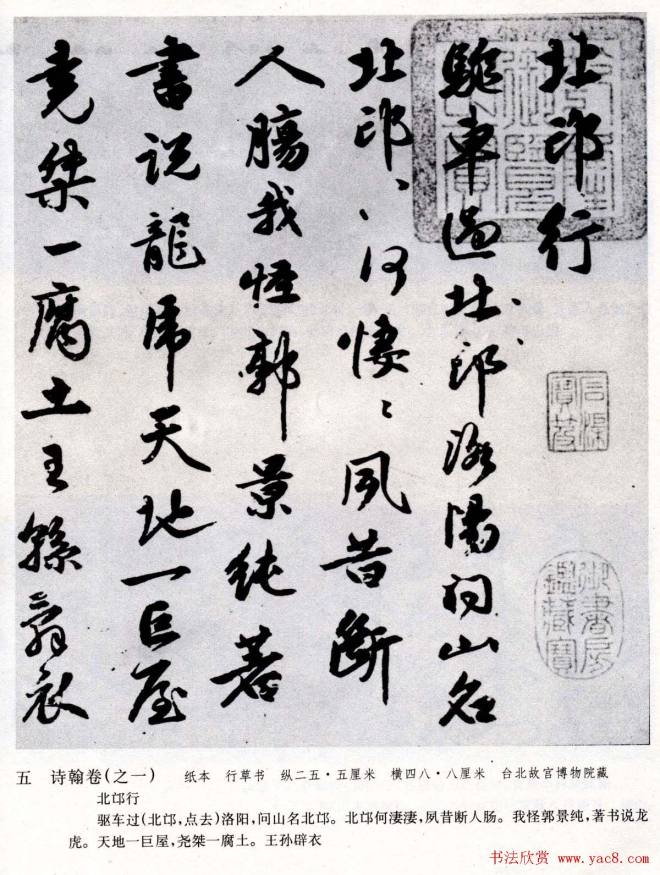 北邙行
駈車過北邙洛陽问山名
北邙〻何悽〻夙昔斷
人腸我怪郭景純著
書説龍虎天地一巨屋
堯桀一腐土王孫
衣
石渠寶笈
御書房鑑藏寶
五 诗翰卷(之一) 纸本 行草书 纵二五·五厘米 横四八·八厘米 台北故宫博物院藏
北邙行
驱车过(北邙,点去)洛阳,问山名北邙。北邙何凄凄,夙昔断人肠。我怪郭景纯,著书说龙
虎。天地一巨屋,尧桀一腐土。王孙辟衣
书法欣赏 www.yac8.com